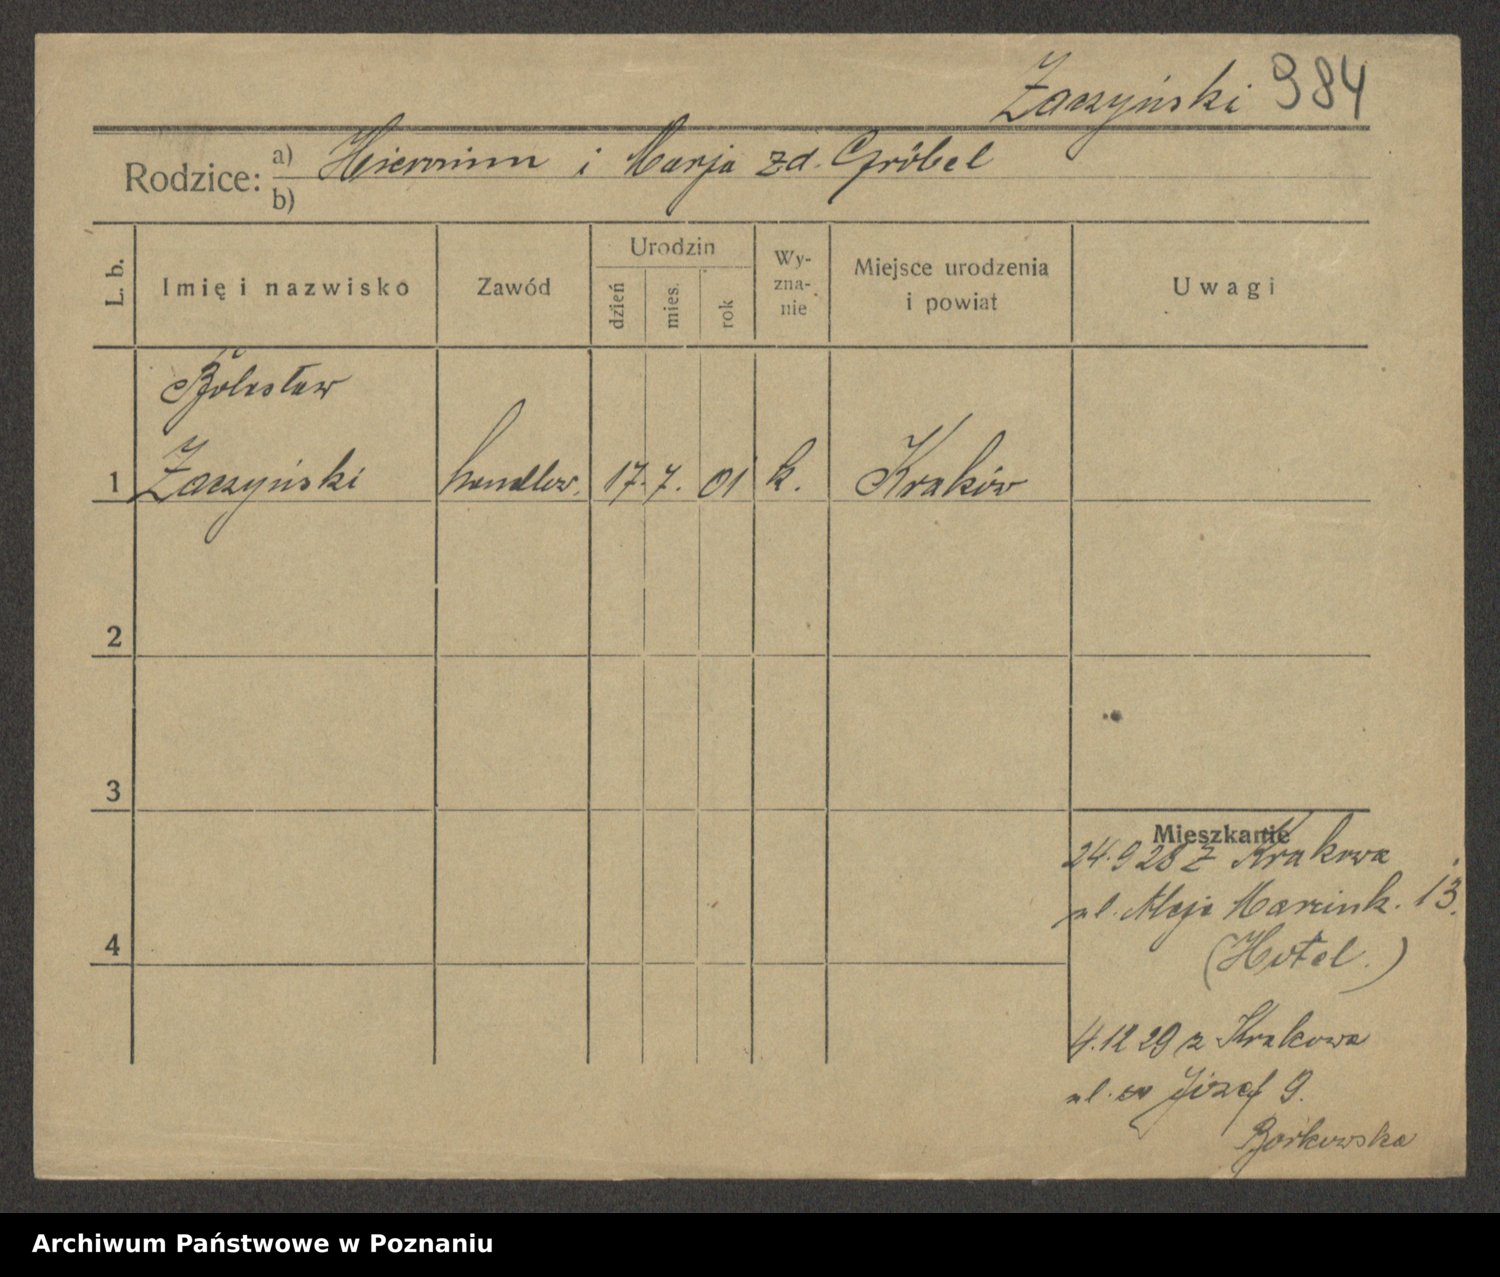 Zaczyński 984
Rodzice: a) Hieronim i Marja zd. Gröbel
b)
L. b.
Imię i nazwisko
Zawód
Urodzin
dzień
mies.
rok
Wy-
zna-
nie
Miejsce urodzenia
i powiat
Uwagi
Bolesław
1 Zaczyński handlow. 17. 7. 01 k. Kraków
2
3
4
Mieszkanie
24.9 28 z Krakowa
ul. Aleje Marcink. 13.
(Hotel.)
4.12 29 z Krakowa
ul. św Józef 9.
Borkowska
Archiwum Państwowe w Poznaniu